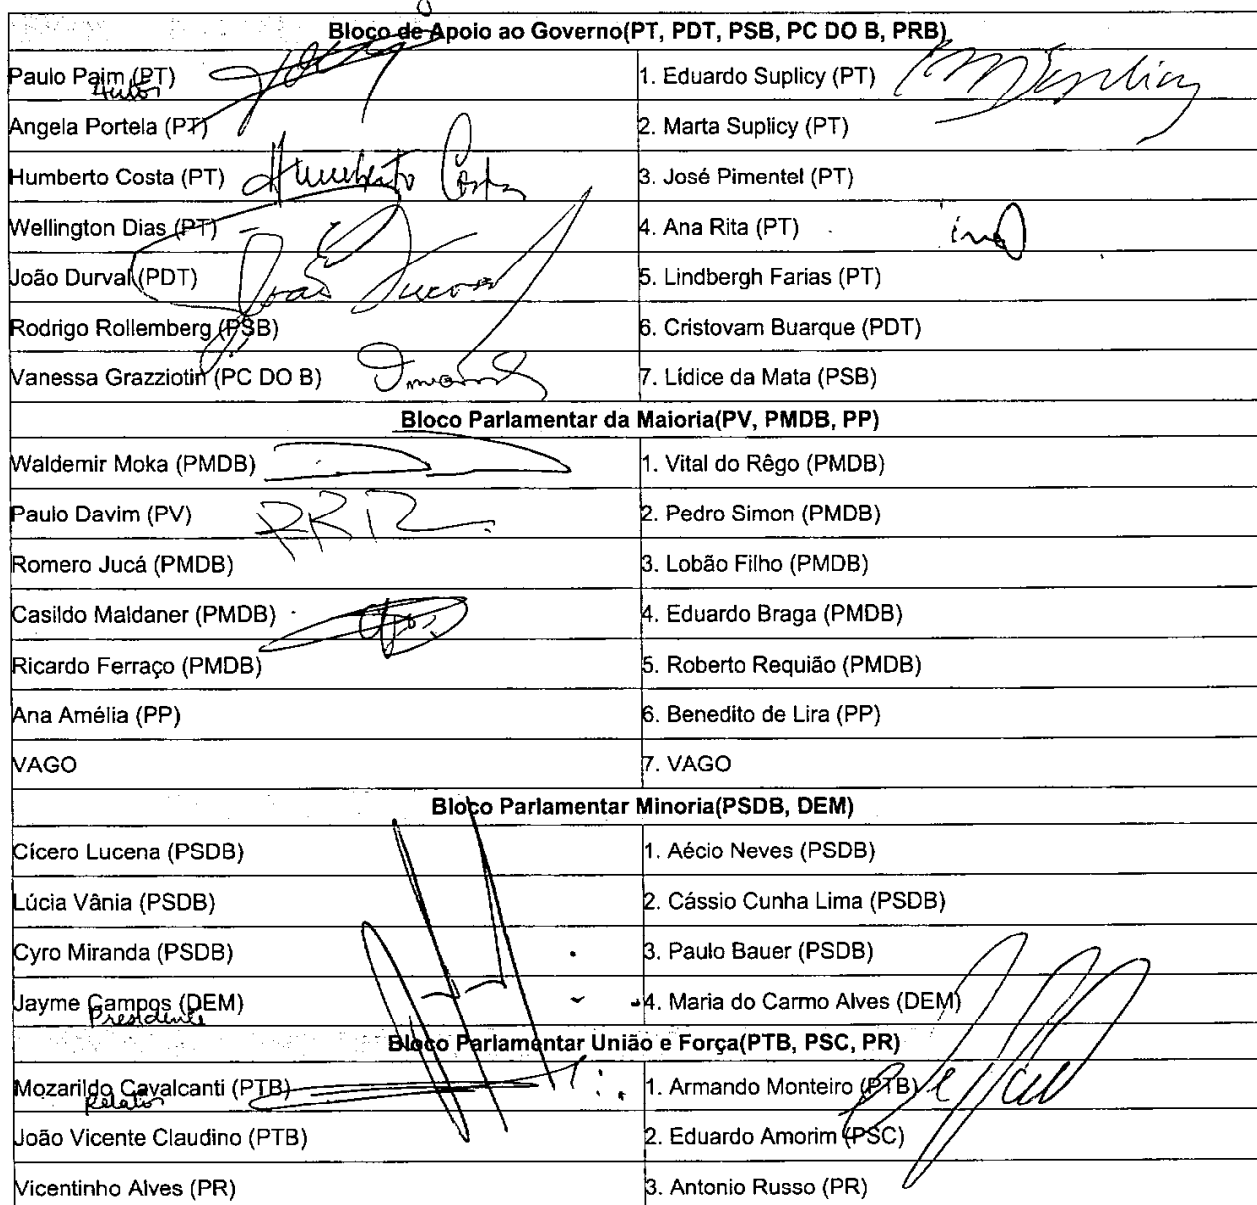 Bloco de Apoio ao Governo(PT, PDT, PSB, PC DO B, PRB)
Paulo Paim (PT) 1. Eduardo Suplicy (PT)
Autor
Angela Portela (PT) 2. Marta Suplicy (PT)
Humberto Costa (PT) Humberto Costa 3. José Pimentel (PT)
Wellington Dias (PT) 4. Ana Rita (PT)
João Durval (PDT) João Durval 5. Lindbergh Farias (PT)
Rodrigo Rollemberg (PSB) 6. Cristovam Buarque (PDT)
Vanessa Grazziotin (PC DO B) 7. Lídice da Mata (PSB)
Bloco Parlamentar da Maioria(PV, PMDB, PP)
Waldemir Moka (PMDB) 1. Vital do Rêgo (PMDB)
Paulo Davim (PV) 2. Pedro Simon (PMDB)
Romero Jucá (PMDB) 3. Lobão Filho (PMDB)
Casildo Maldaner (PMDB) 4. Eduardo Braga (PMDB)
Ricardo Ferraço (PMDB) 5. Roberto Requião (PMDB)
Ana Amélia (PP) 6. Benedito de Lira (PP)
VAGO 7. VAGO
Bloco Parlamentar Minoria(PSDB, DEM)
Cícero Lucena (PSDB) 1. Aécio Neves (PSDB)
Lúcia Vânia (PSDB) 2. Cássio Cunha Lima (PSDB)
Cyro Miranda (PSDB) 3. Paulo Bauer (PSDB)
Jayme Campos (DEM) 4. Maria do Carmo Alves (DEM)
Presidente
Bloco Parlamentar União e Força(PTB, PSC, PR)
Mozarildo Cavalcanti (PTB) 1. Armando Monteiro (PTB)
Relator
João Vicente Claudino (PTB) 2. Eduardo Amorim (PSC)
Vicentinho Alves (PR) 3. Antonio Russo (PR)